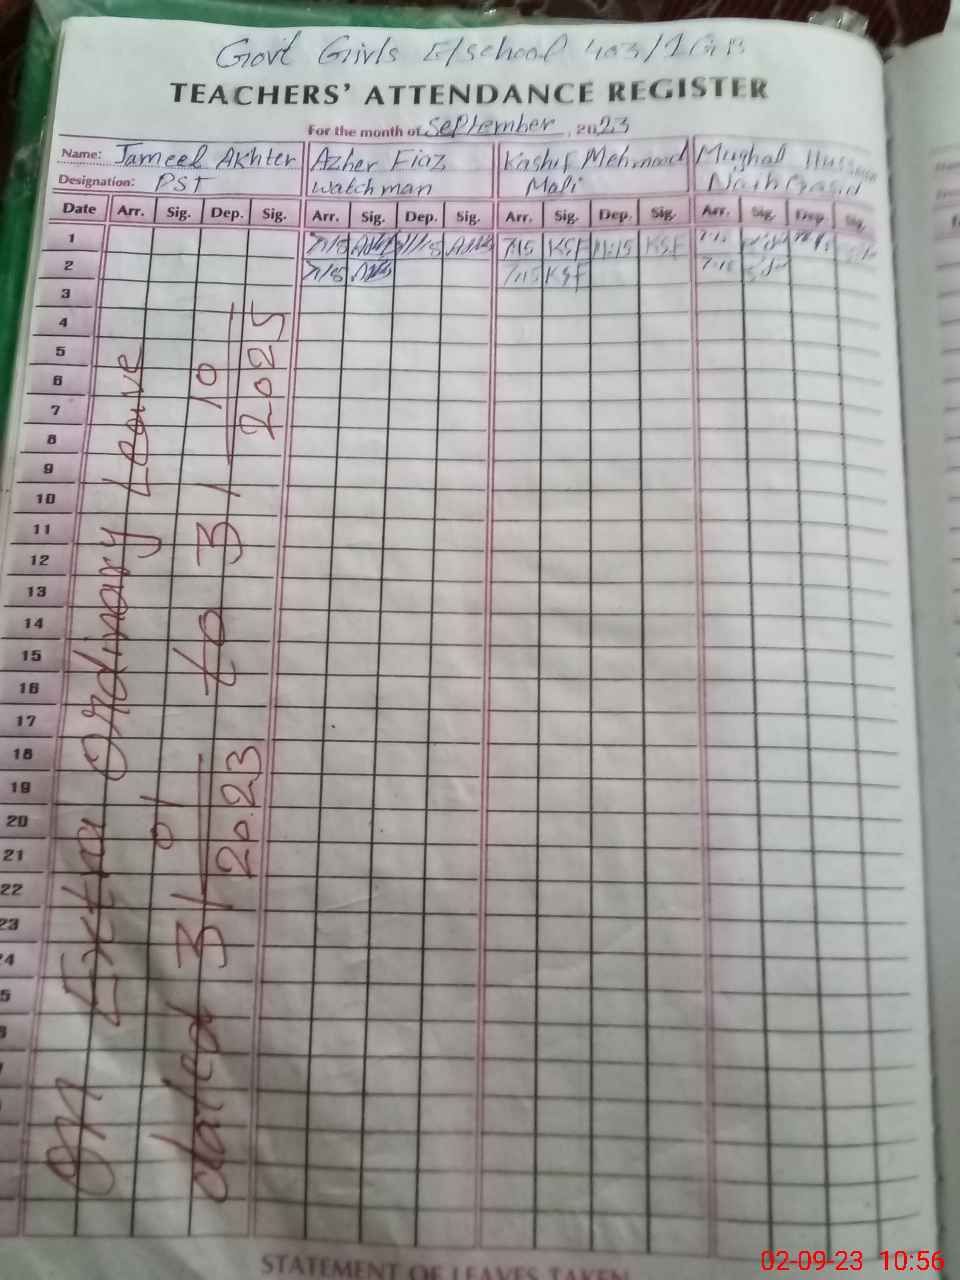 Govt Girls E/school 403/1GB
TEACHERS' ATTENDANCE REGISTER
For the month of September, 2023
Name: Jameel Akhter Azher Fiaz Kashif Mehmood Mughal Hussain
Designation: PST watchman Mali Naib Qasid
Date Arr. Sig. Dep. Sig. Arr. Sig. Dep. Sig. Arr. Sig. Dep. Sig. Arr. Sig. Dep. Sig.
1 7/15 11/15 7:15 KSF 11:15 KSF 7:15
2 7/15 7:15 KSF 7:15
3
4
5
6
7
8
9
10
11
12
13
14
15
16
17
18
19
20
21
22
23
24
5
on Extra ordinary Leave
dated 31/01/2023 to 31/10/2025
STATEMENT OF LEAVES TAKEN
02-09-23 10:56